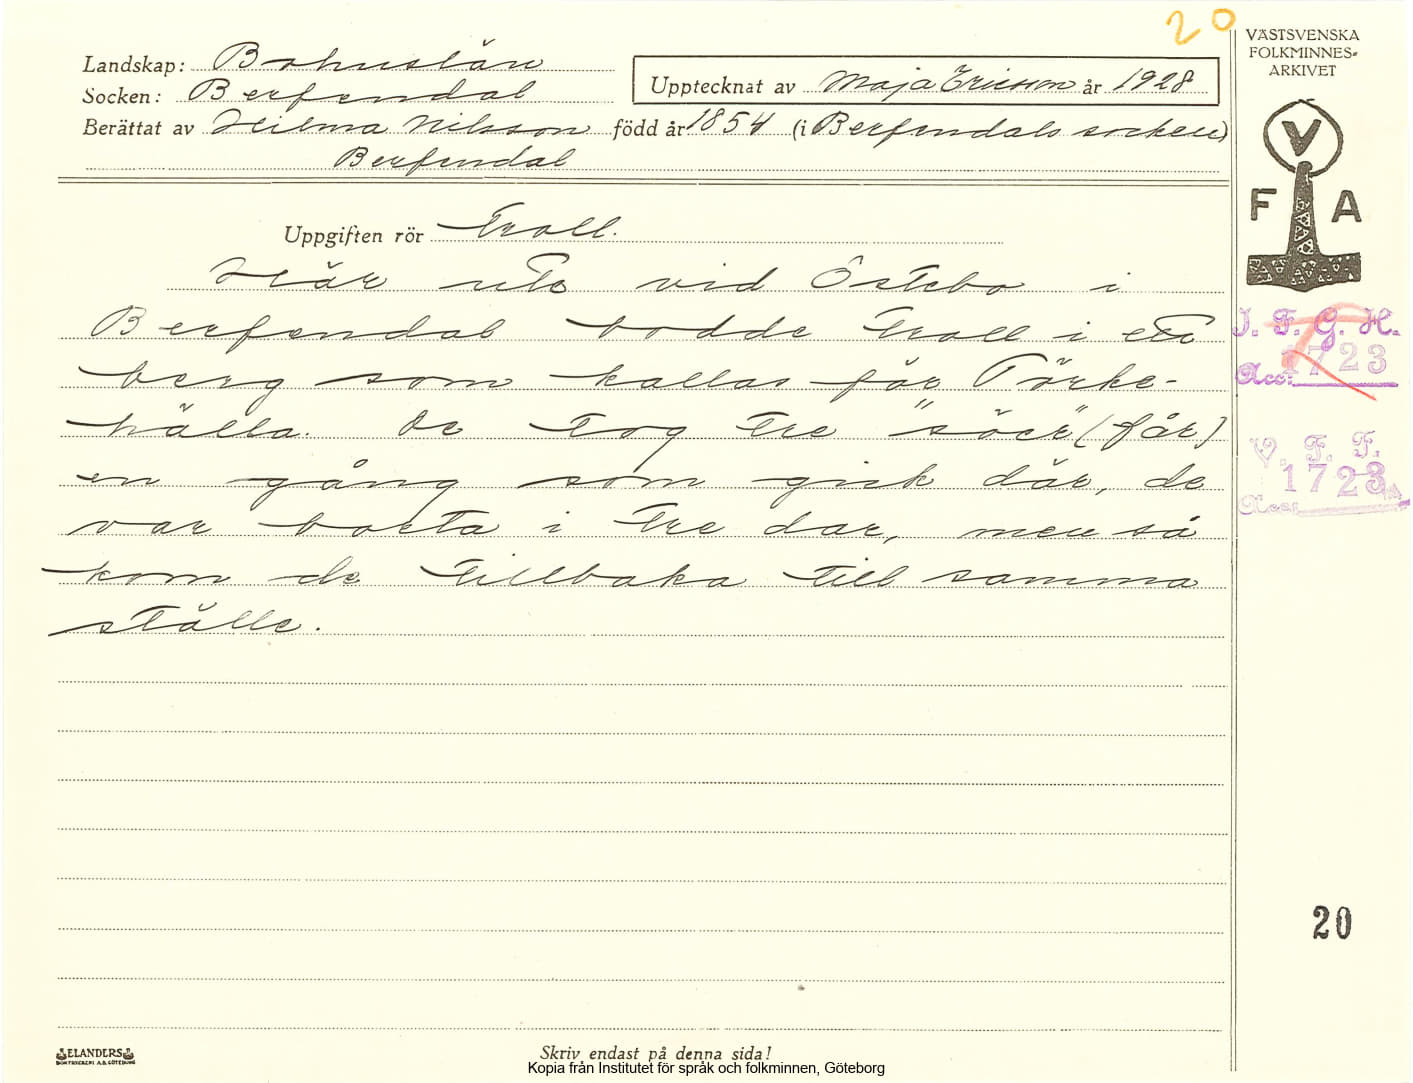 20
VÄSTSVENSKA
FOLKMINNES-
ARKIVET
Landskap: Bohuslän
Socken: Berfendal
Upptecknat av Maja Ericson år 1928
Berättat av Hilma Nilsson född år 1854 (i Berfendals socken)
Berfendal
V
F A
Uppgiften rör Troll.
Här ute vid Östebo i
Berfendal bodde troll i ett
berg som kallas för Törke-
hälla. De tog tre "söer" (får)
en gång som gick där, de
var borta i tre dar, men så
kom de tillbaka till samma
ställe.
I. F. G. H.
Acc: 1723
V. F. F.
1723
Acc:
20
ELANDERS
BOKTRYCKERI A.B. GÖTEBORG
Skriv endast på denna sida!
Kopia från Institutet för språk och folkminnen, Göteborg